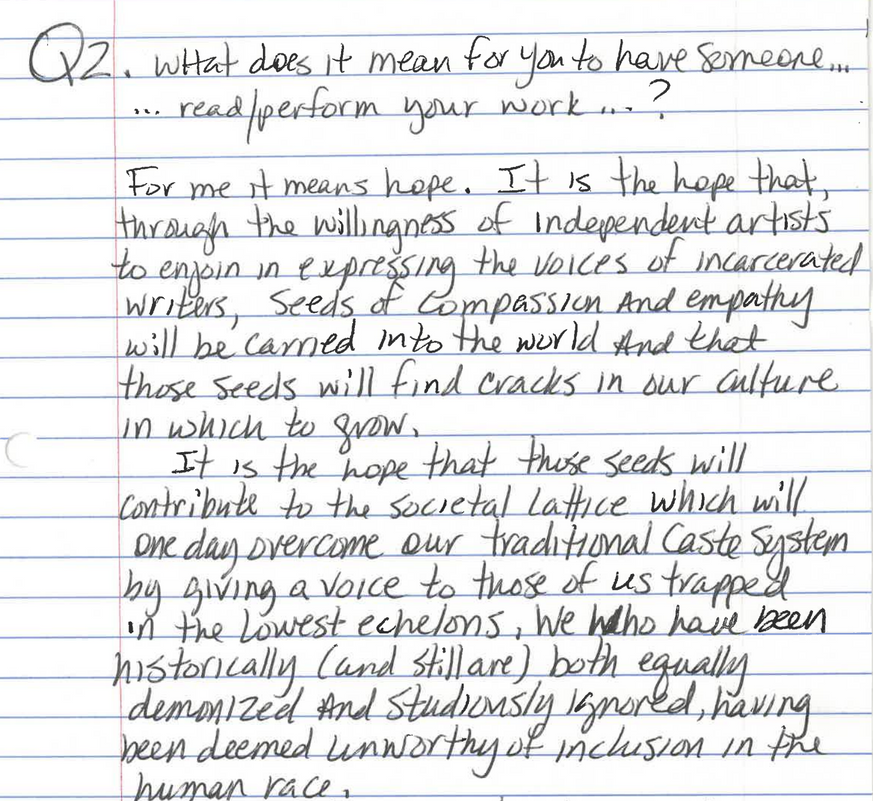 Q2. What does it mean for you to have someone...
... read/perform your work ...?
For me it means hope. It is the hope that,
through the willingness of independent artists
to enjoin in expressing the voices of incarcerated
writers, seeds of compassion And empathy
will be carried into the world And that
those seeds will find cracks in our culture
in which to grow.
It is the hope that those seeds will
contribute to the societal lattice which will
one day overcome our traditional Caste System
by giving a voice to those of us trapped
in the lowest echelons, We who have been
historically (and still are) both equally
demonized And studiously ignored, having
been deemed unworthy of inclusion in the
human race.